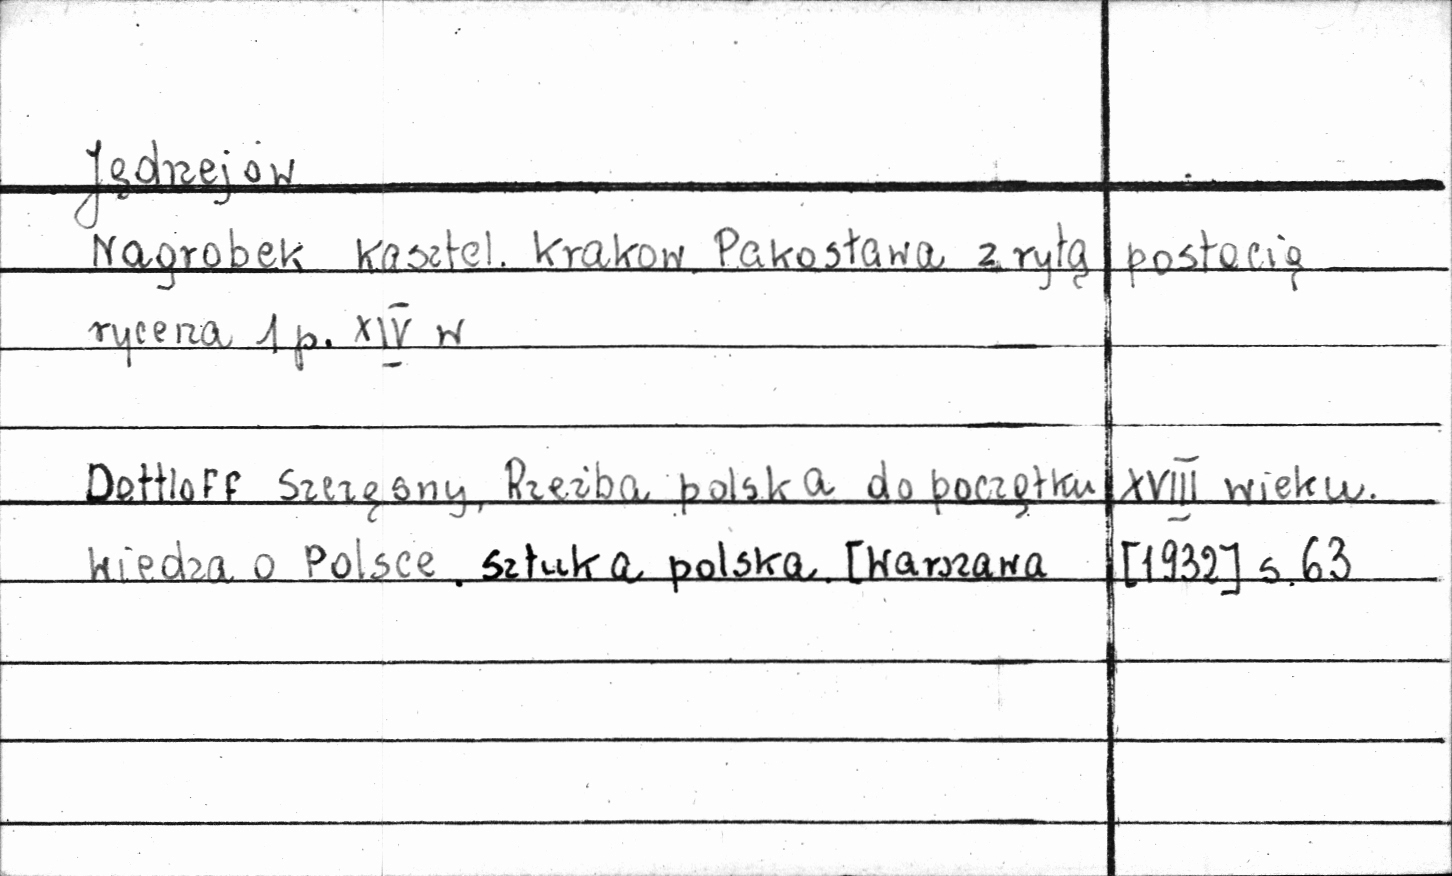 Jędrzejów
Nagrobek kasztel. krakow. Pakosława z rytą postacią
rycerza 1 p. XIV w
Dettloff Szczęsny, Rzeźba polska do początku XVIII wieku.
Wiedza o Polsce. sztuka polska. [Warszawa [1932] s. 63